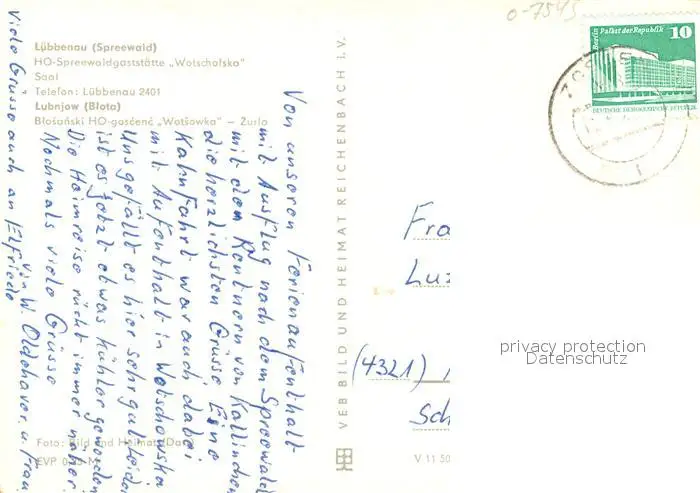 Lübbenau (Spreewald)
HO-Spreewaldgaststätte „Wotschofska"
Saal
Telefon: Lübbenau 2401
Lubnjow (Błota)
Błośański HO-gosćeńc „Wótšowka" – Zurlo
Von unseren Ferienaufenthalt-
mit Ausflug nach dem Spreewald
mit den Rentnern von Kallinchen
die herzlichsten Grüsse Eine
Kahnfahrt war auch dabei
mit Aufenthalt in Wotschowska
Uns gefällt es hier sehr gut leider
ist es jetzt etwas kühler geworden
Die Heimreise rückt immer näher
Nochmals viele Grüsse
von W. Oldehaver u. Frau
Viele Grüsse auch an Elfriede
Foto: Bild und Heimat
EVP M
VEB BILD UND HEIMAT REICHENBACH I. V.
V 11 50
0-7545
Berlin Palast der Republik 10
DEUTSCHE DEMOKRATISCHE REPUBLIK
Fra
Luz
(4321)
Sch
privacy protection
Datenschutz